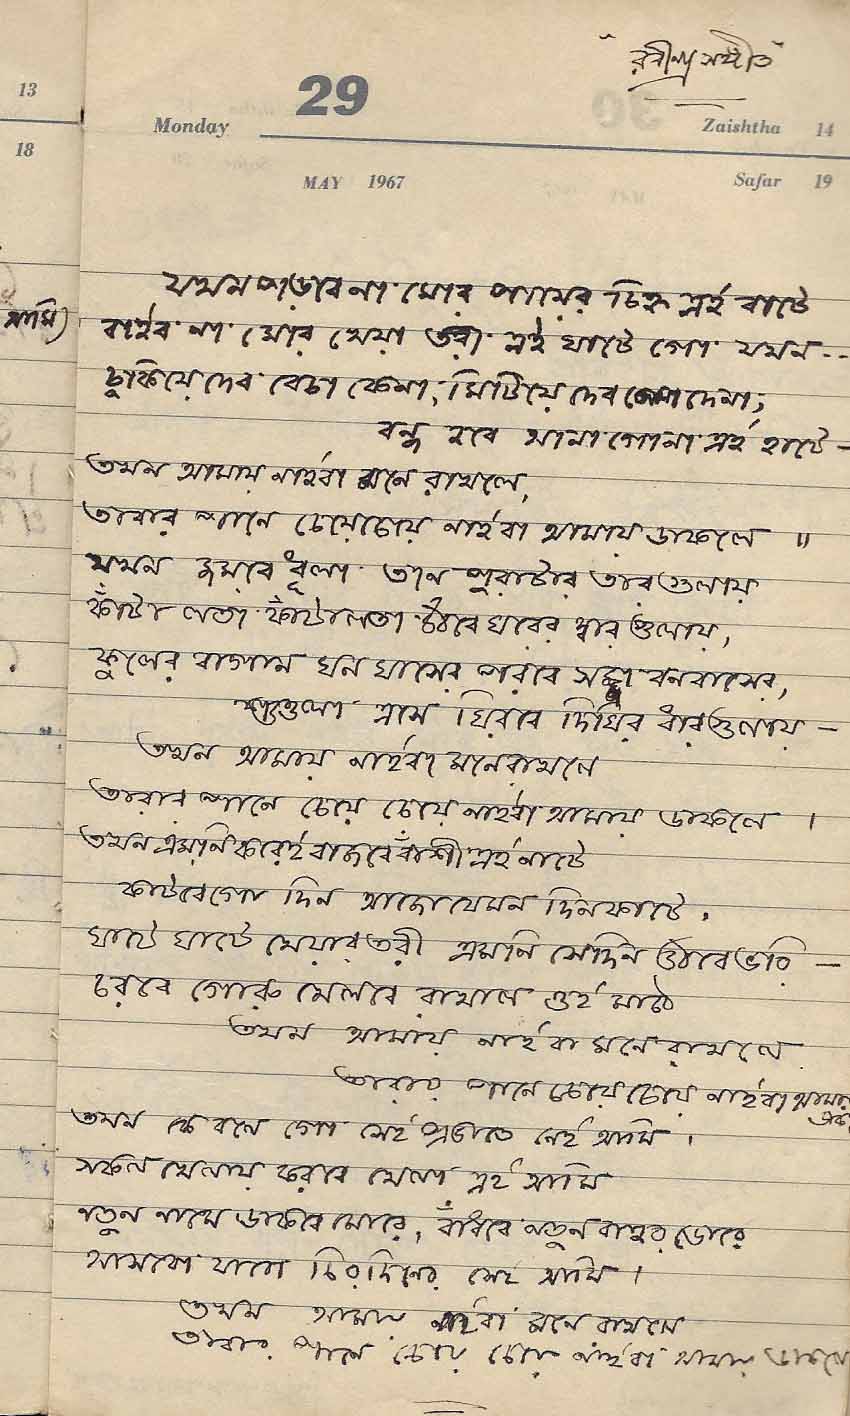 "রবীন্দ্র সঙ্গীত"
13
29
Monday
Zaishtha 14
18
MAY 1967
Safar 19
যখন পড়বে না মোর পায়ের চিহ্ন এই বাটে
আমি)
বাইব না মোর খেয়া তরী এই ঘাটে গো যখন--
চুকিয়ে দেব বেচা কেনা, মিটিয়ে দেব লেনা দেনা,
বন্ধ হবে আনা গোনা এই হাটে –
তখন আমায় নাইবা মনে রাখলে,
তারার পানে চেয়ে চেয়ে নাইবা আমায় ডাকলে ॥
যখন জমবে ধূলা তান পুরাটার তার গুলায়
কাঁটা লতা কাঁটালতা উঠবে ঘরের দ্বার গুলায়,
ফুলের বাগান ঘন ঘাসের পরবে সজ্জা বনবাসের,
শ্যাওলা এসে ঘিরবে দিঘির ধার গুলায় –
তখন আমায় নাইবা মনে রাখলে
তারার পানে চেয়ে চেয়ে নাইবা আমায় ডাকলে ।
তখন এমনি করেই বাজবে বাঁশী এই নাটে
কাটবে গো দিন আজো যেমন দিন কাটে,
ঘাটে ঘাটে খেয়ার তরী এমনি সেদিন উঠবে ভরি –
চরবে গোরু খেলবে রাখাল ওই মাঠে
তখন আমায় নাইবা মনে রাখলে
তারার পানে চেয়ে চেয়ে নাইবা আমায়
তখন কে বলে গো সেই প্রভাতে নেই আমি ।
সকল খেলায় করবে খেলা এই আমি
নতুন নামে ডাকবে মোরে, বাঁধবে নতুন বাহুর ডোরে
আসবো যাবো চিরদিনের সেই আমি ।
তখন আমায় নাইবা মনে রাখলে
তারার পানে চেয়ে চেয়ে নাইবা আমায় ডাকলে